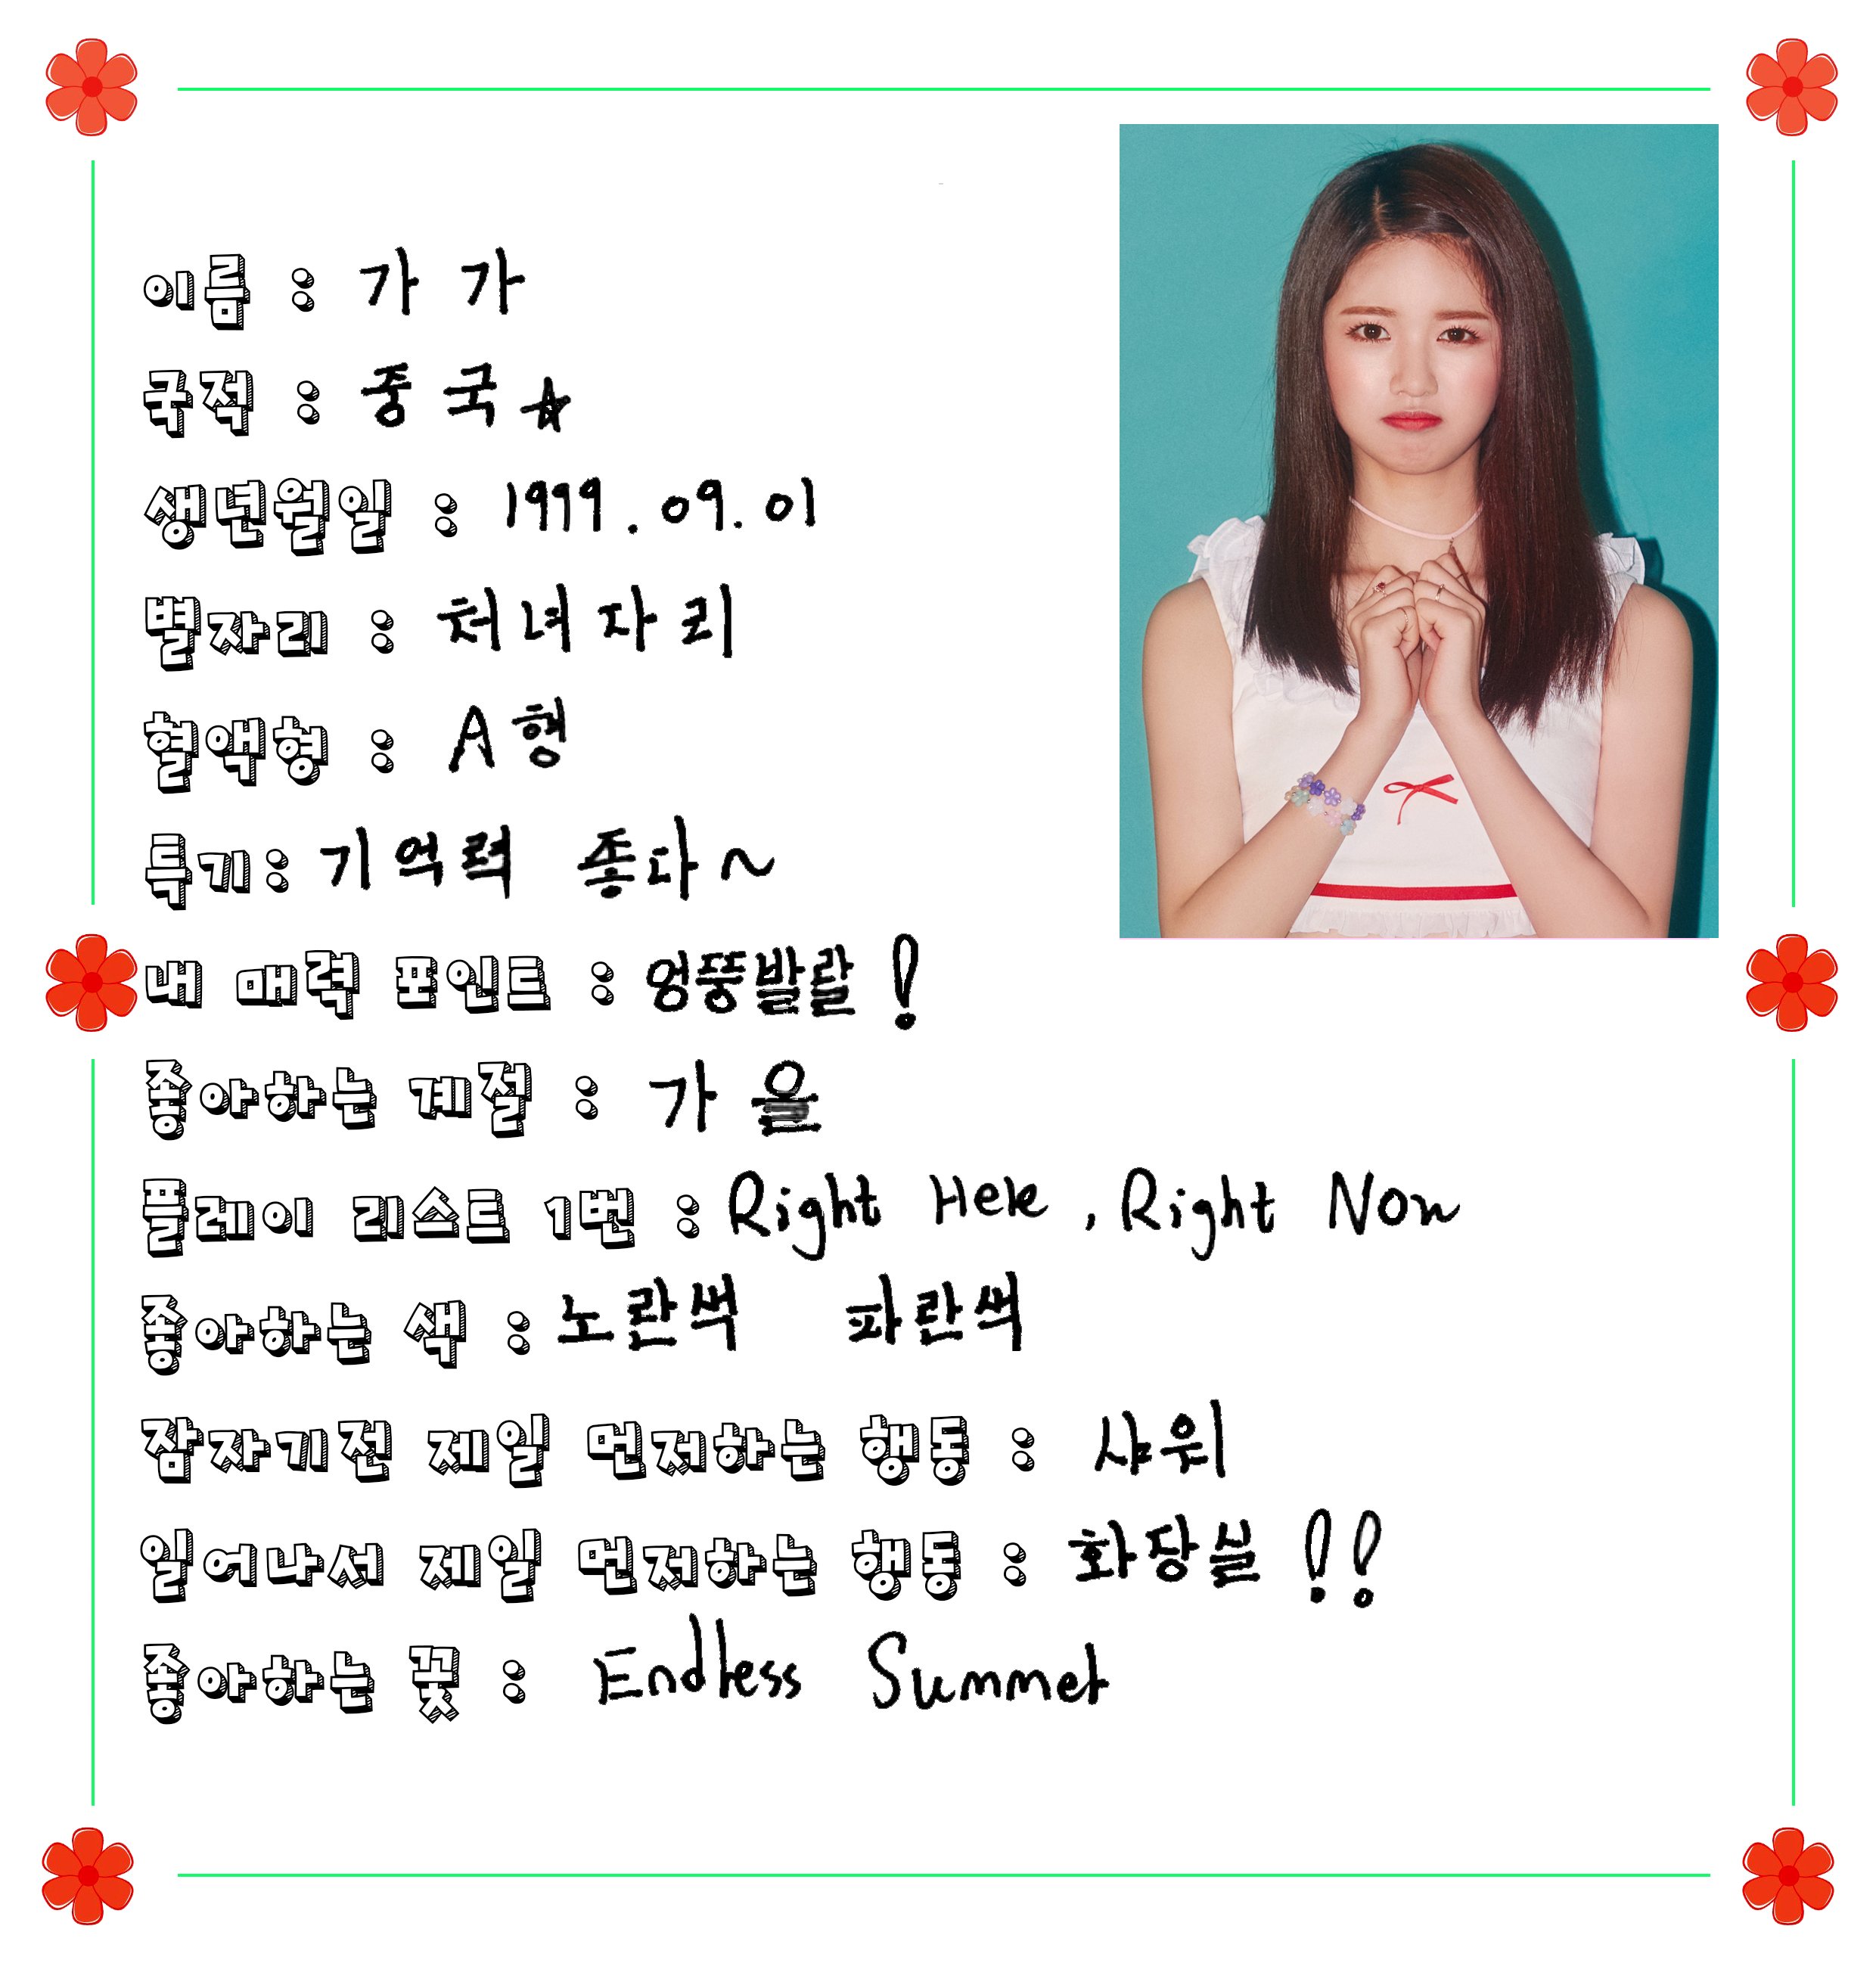 이름 : 가가
국적 : 중국☆
생년월일 : 1999.09.01
별자리 : 처녀자리
혈액형 : A형
특기 : 기억력 좋다~
내 매력 포인트 : 엉뚱발랄!
좋아하는 계절 : 가을
플레이 리스트 1번 : Right Here, Right Now
좋아하는 색 : 노란색 파란색
잠자기전 제일 먼저하는 행동 : 샤워
일어나서 제일 먼저하는 행동 : 화장실!!
좋아하는 꽃 : Endless Summer